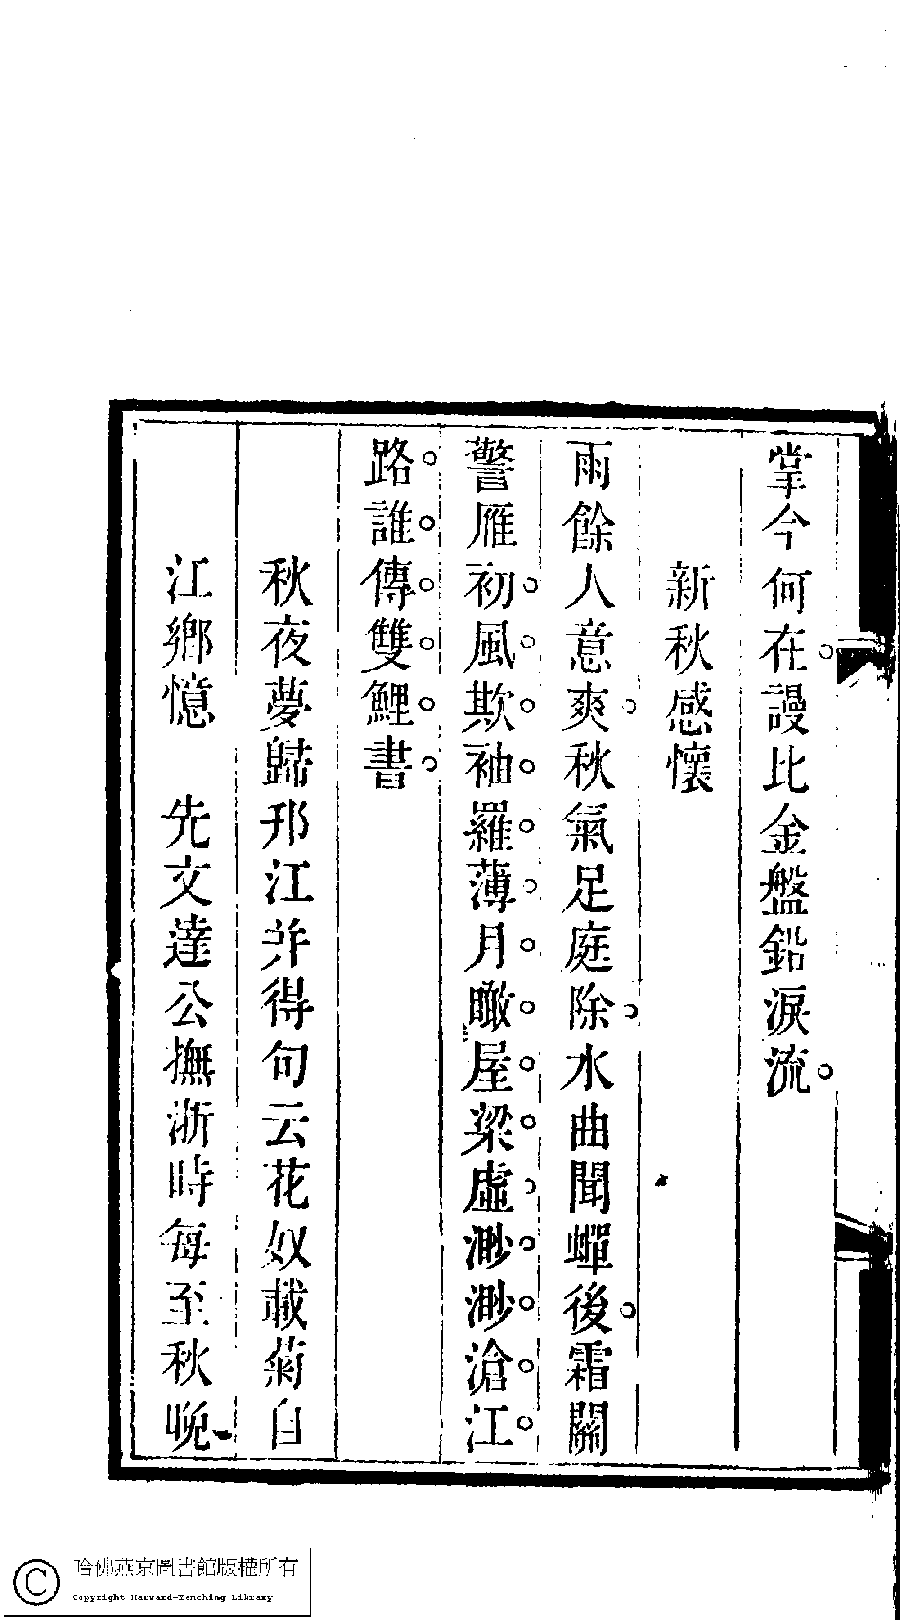 掌今何在謾比金盤鉛淚流
新秋感懷
雨餘人意爽秋氣足庭除水曲聞蟬後霜關
警雁初風欺袖羅薄月瞰屋梁虛渺渺滄江
路誰傳雙鯉書
秋夜夢歸邗江并得句云花奴載菊自
江鄉憶　先文達公撫浙時每至秋晚
哈佛燕京圖書館版權所有
Copyright Harvard-Yenching Library